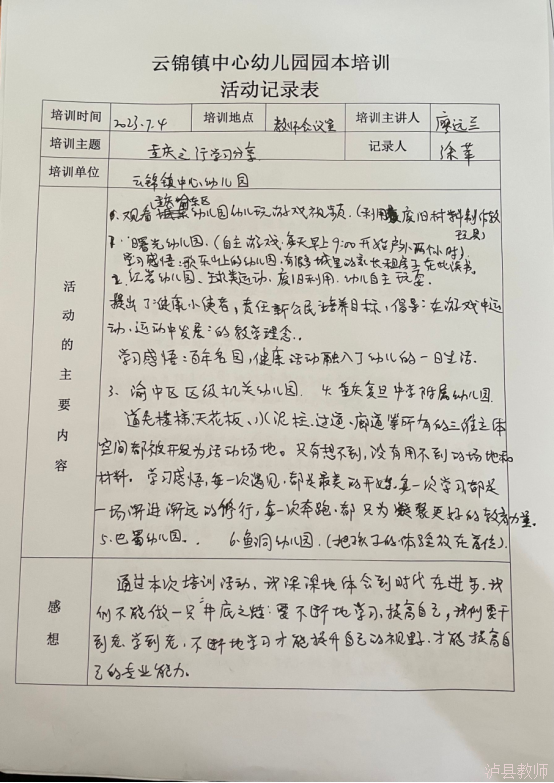 云锦镇中心幼儿园园本培训
活动记录表
培训时间 2023.7.4 培训地点 教师会议室 培训主讲人 廖远兰
培训主题 重庆之行学习分享 记录人 徐苹
培训单位 云锦镇中心幼儿园
活动的主要内容
重庆渝东区
0.观看幼儿园幼儿玩游戏视频.(利用废旧材料制作教
玩具)
1.曙光幼儿园.(自主游戏.每天早上9:00开始户外两个小时)
学习感悟:歌乐山上的幼儿园,有很多城里的家长租房子在此读书。
2.红岩幼儿园、球类运动、废旧利用.幼儿自主玩耍.
提出了健康小使者,责任新公民培养目标,倡导:在游戏中运
动.运动中发展:的教学理念..
学习感悟:百年名园,健康活动融入了幼儿的一日生活.
3.渝中区区级机关幼儿园. 4.重庆复旦中学附属幼儿园.
道先楼梯、天花板、水泥柱、过道、廊道等所有的三维立体
空间都被开发为活动场地。只有想不到,没有用不到的场地和
材料。学习感悟,每一次遇见.都是最美的开始,每一次学习都是
一场渐进渐远的修行,每一次奔跑.都只为凝聚更好的教育力量。
5.巴蜀幼儿园.. 6.鱼洞幼儿园.(把孩子的体验放在首位).
感想
通过本次培训活动,我深深地体会到时代在进步.我
们不能做一只"井底之蛙:要不断地学习,提高自己,我们要干
到老.学到老,不断地学习才能提升自己的视野.才能提高自
己的专业能力。
泸县教师